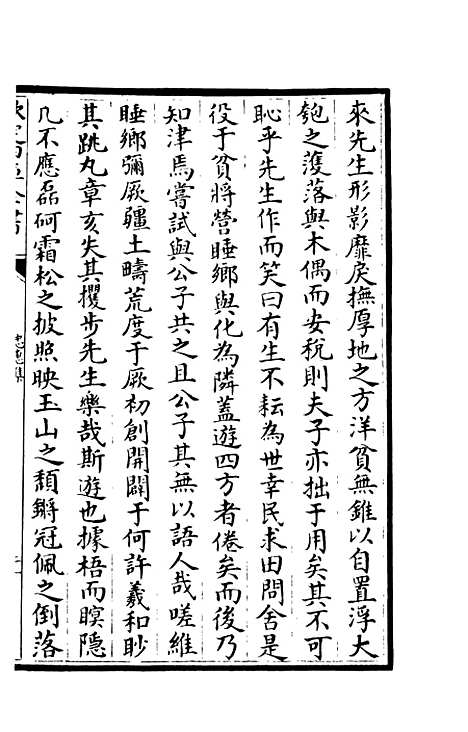 來先生形影靡戾撫厚地之方洋貧無錐以自置浮大
匏之濩落與木偶而安稅則夫子亦拙于用矣其不可
恥乎先生作而笑曰有生不耘為世幸民求田問舍是
役于貧將營睡鄉與化為隣蓋遊四方者倦矣而後乃
知津焉嘗試與公子共之且公子其無以語人哉嗟維
睡鄉彌厥疆土疇荒度于厥初創開闢于何許羲和眇
其跳丸章亥失其攫步先生樂哉斯遊也據梧而瞑隱
几不應磊砢霜松之披照映玉山之頹鏘冠佩之倒落